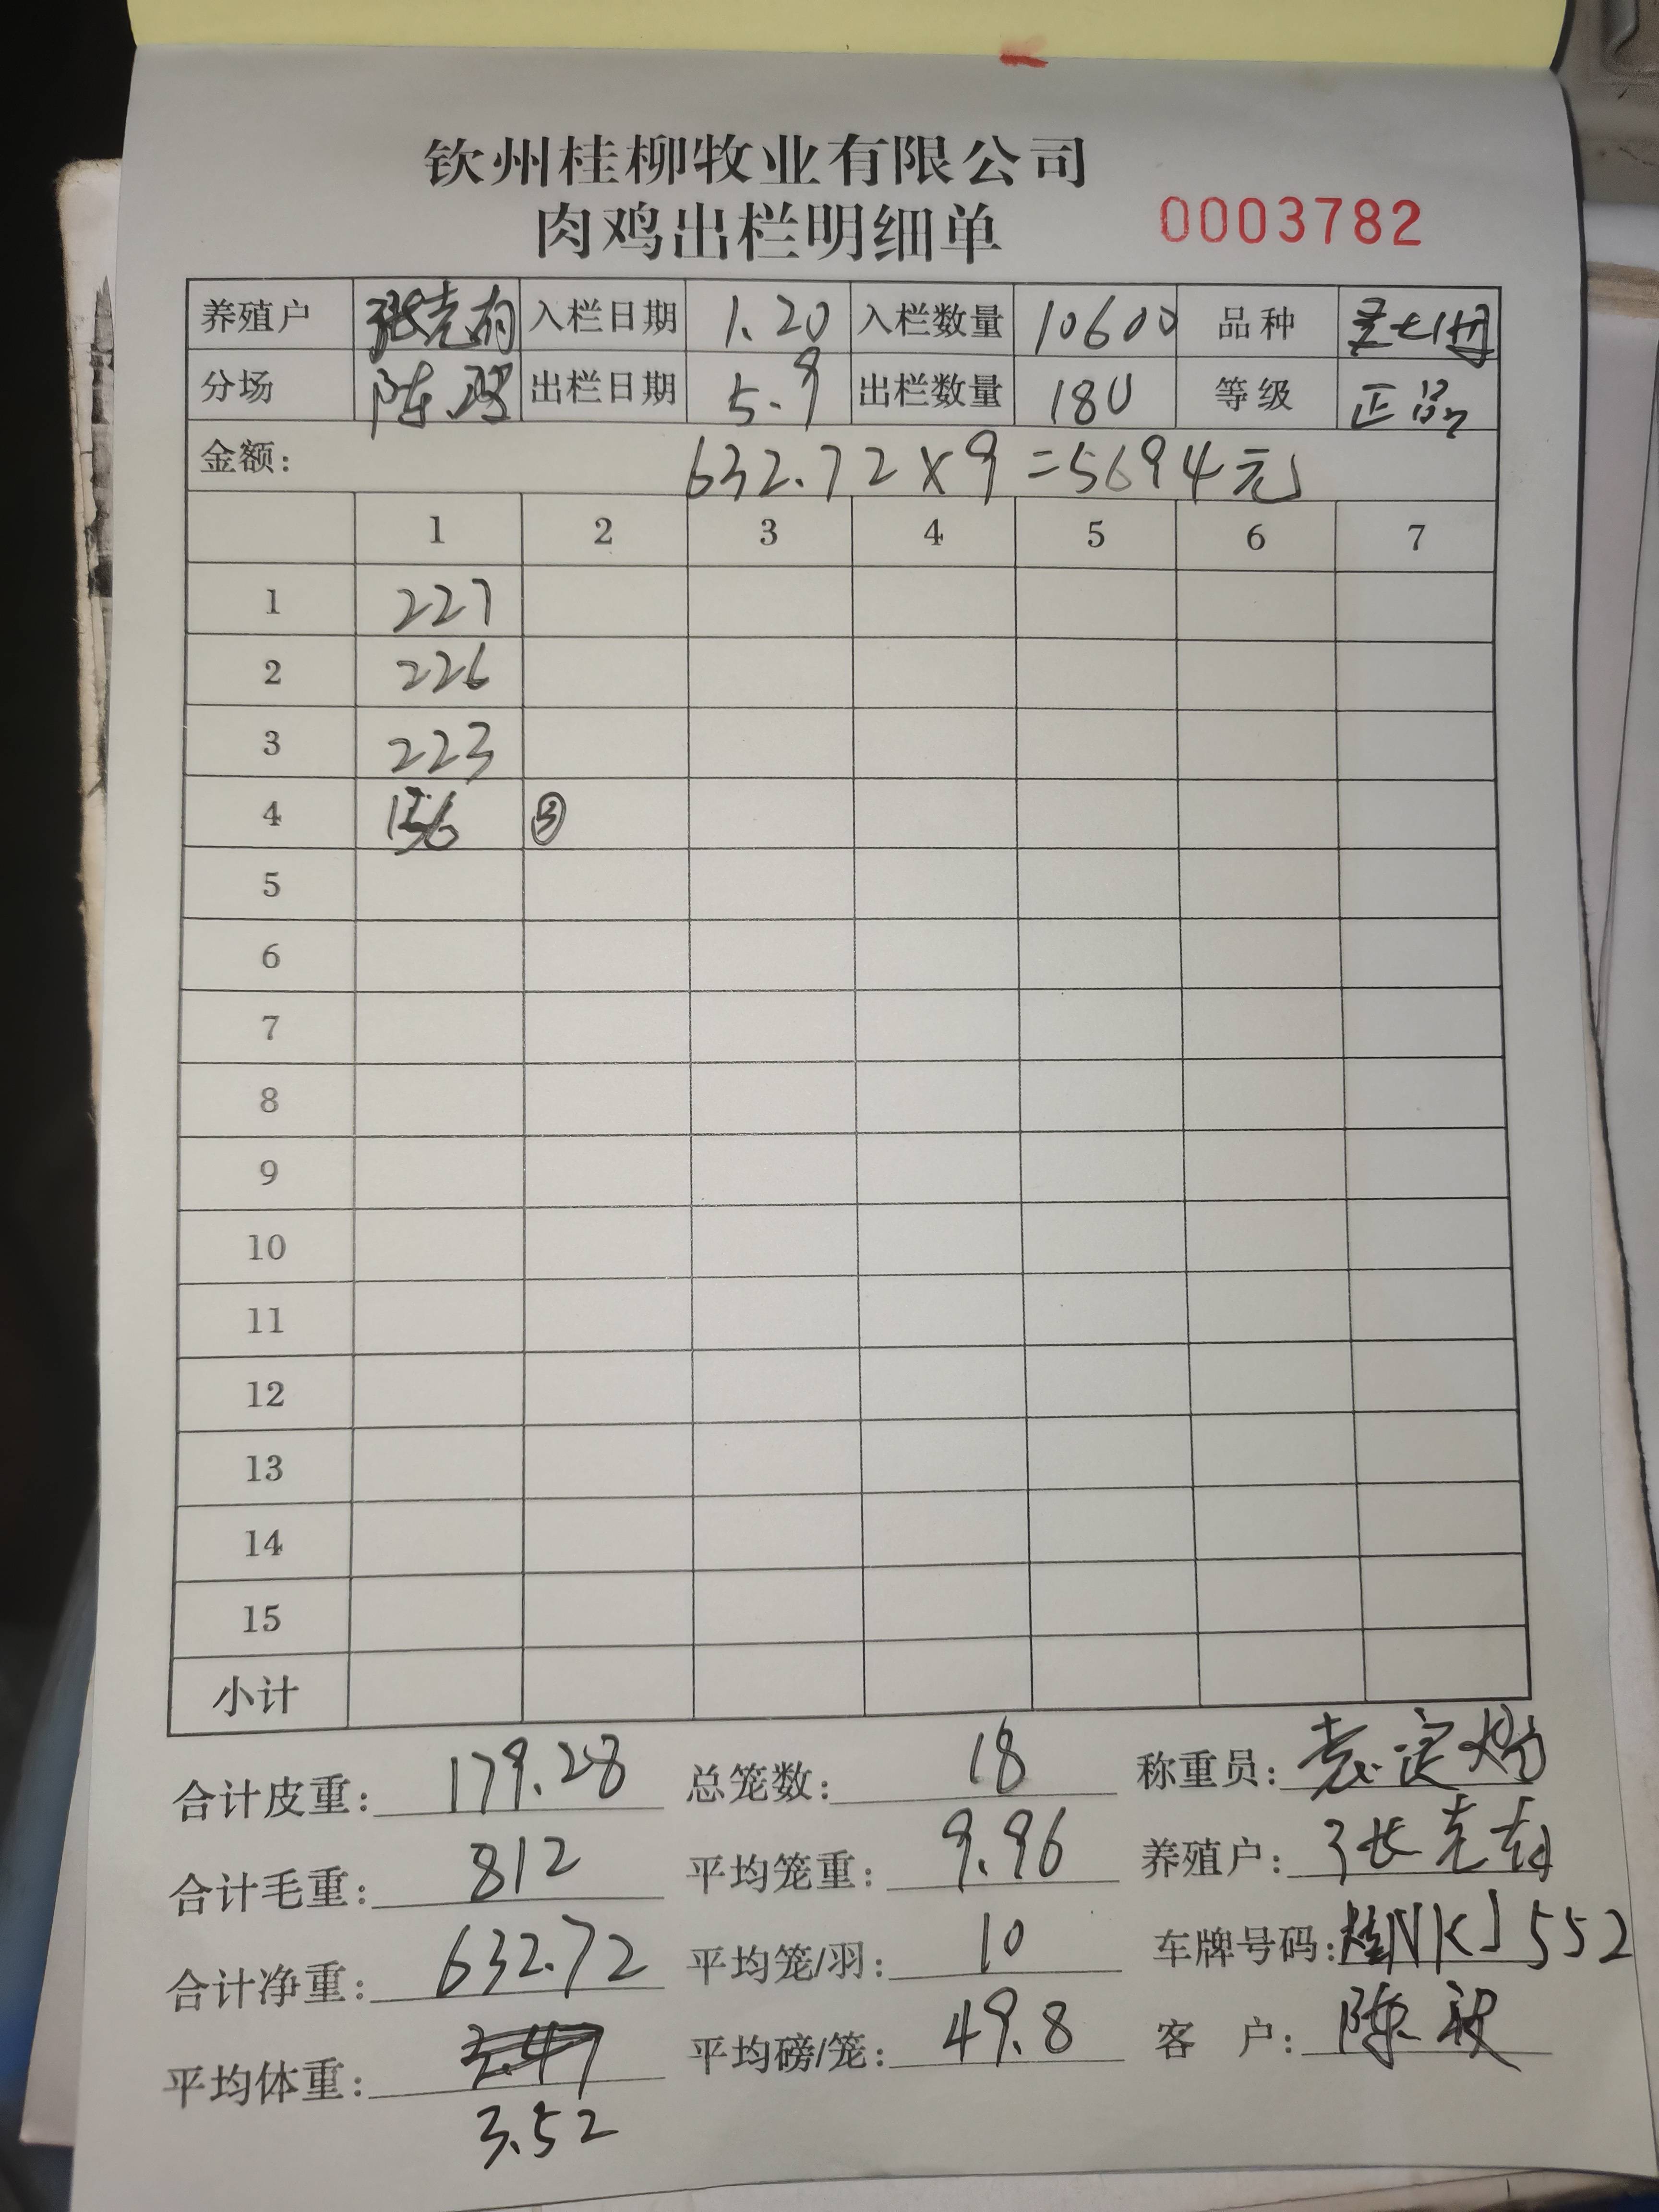 钦州桂柳牧业有限公司
肉鸡出栏明细单 0003782
养殖户 张克 入栏日期 1.20 入栏数量 10600 品种
分场 陈 出栏日期 5.9 出栏数量 180 等级 正品
金额: 632.72×9=5694元
1 2 3 4 5 6 7
1 227
2 226
3 223
4 136 ③
5
6
7
8
9
10
11
12
13
14
15
小计
合计皮重: 179.28 总笼数: 18 称重员: 袁定
合计毛重: 812 平均笼重: 9.96 养殖户: 张克
合计净重: 632.72 平均笼/羽: 10 车牌号码: 桂NKJ552
平均体重: 3.47 平均磅/笼: 49.8 客户: 陈
3.52